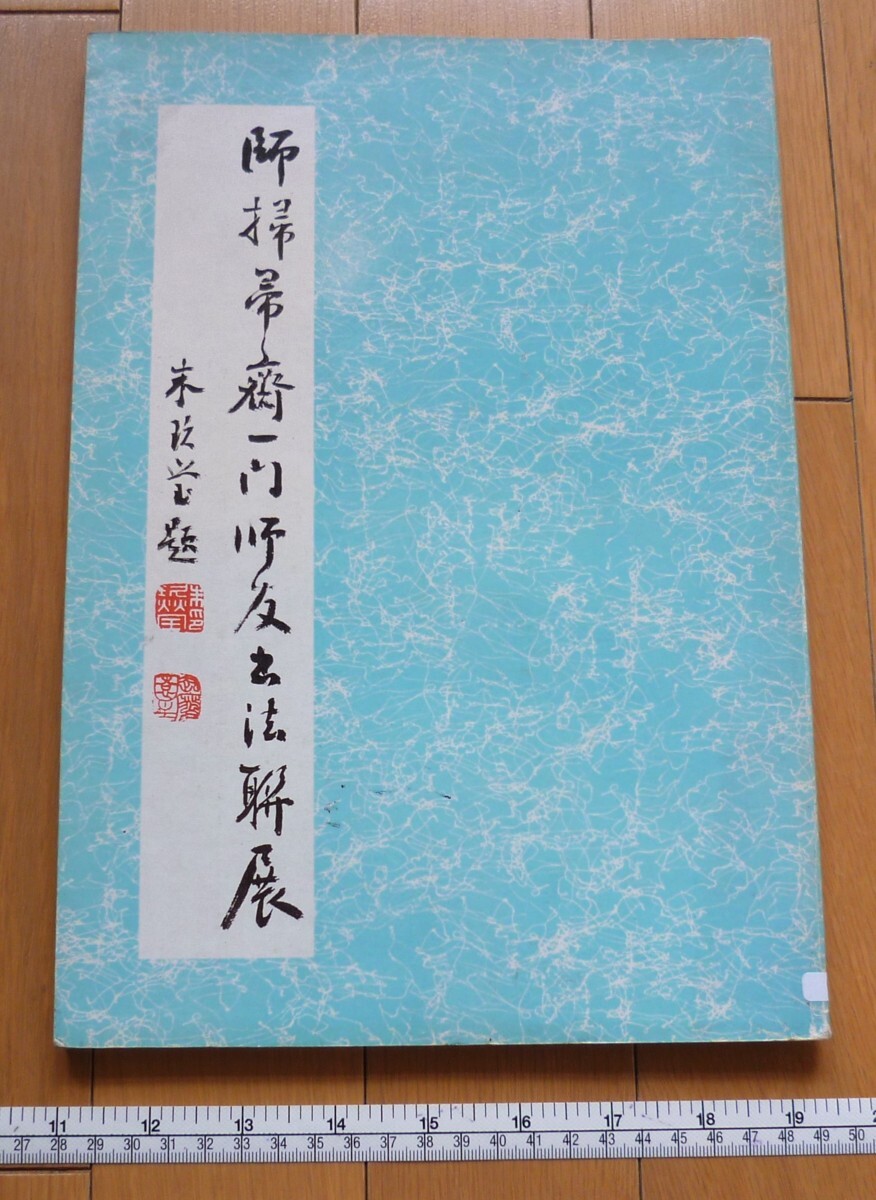 師掃帚齋一門師友書法聯展
朱玖瑩題
11 12 13 14 15 16 17 18 19
27 28 29 30 31 32 33 34 35 36 37 38 39 40 41 42 43 44 45 46 47 48 49 50